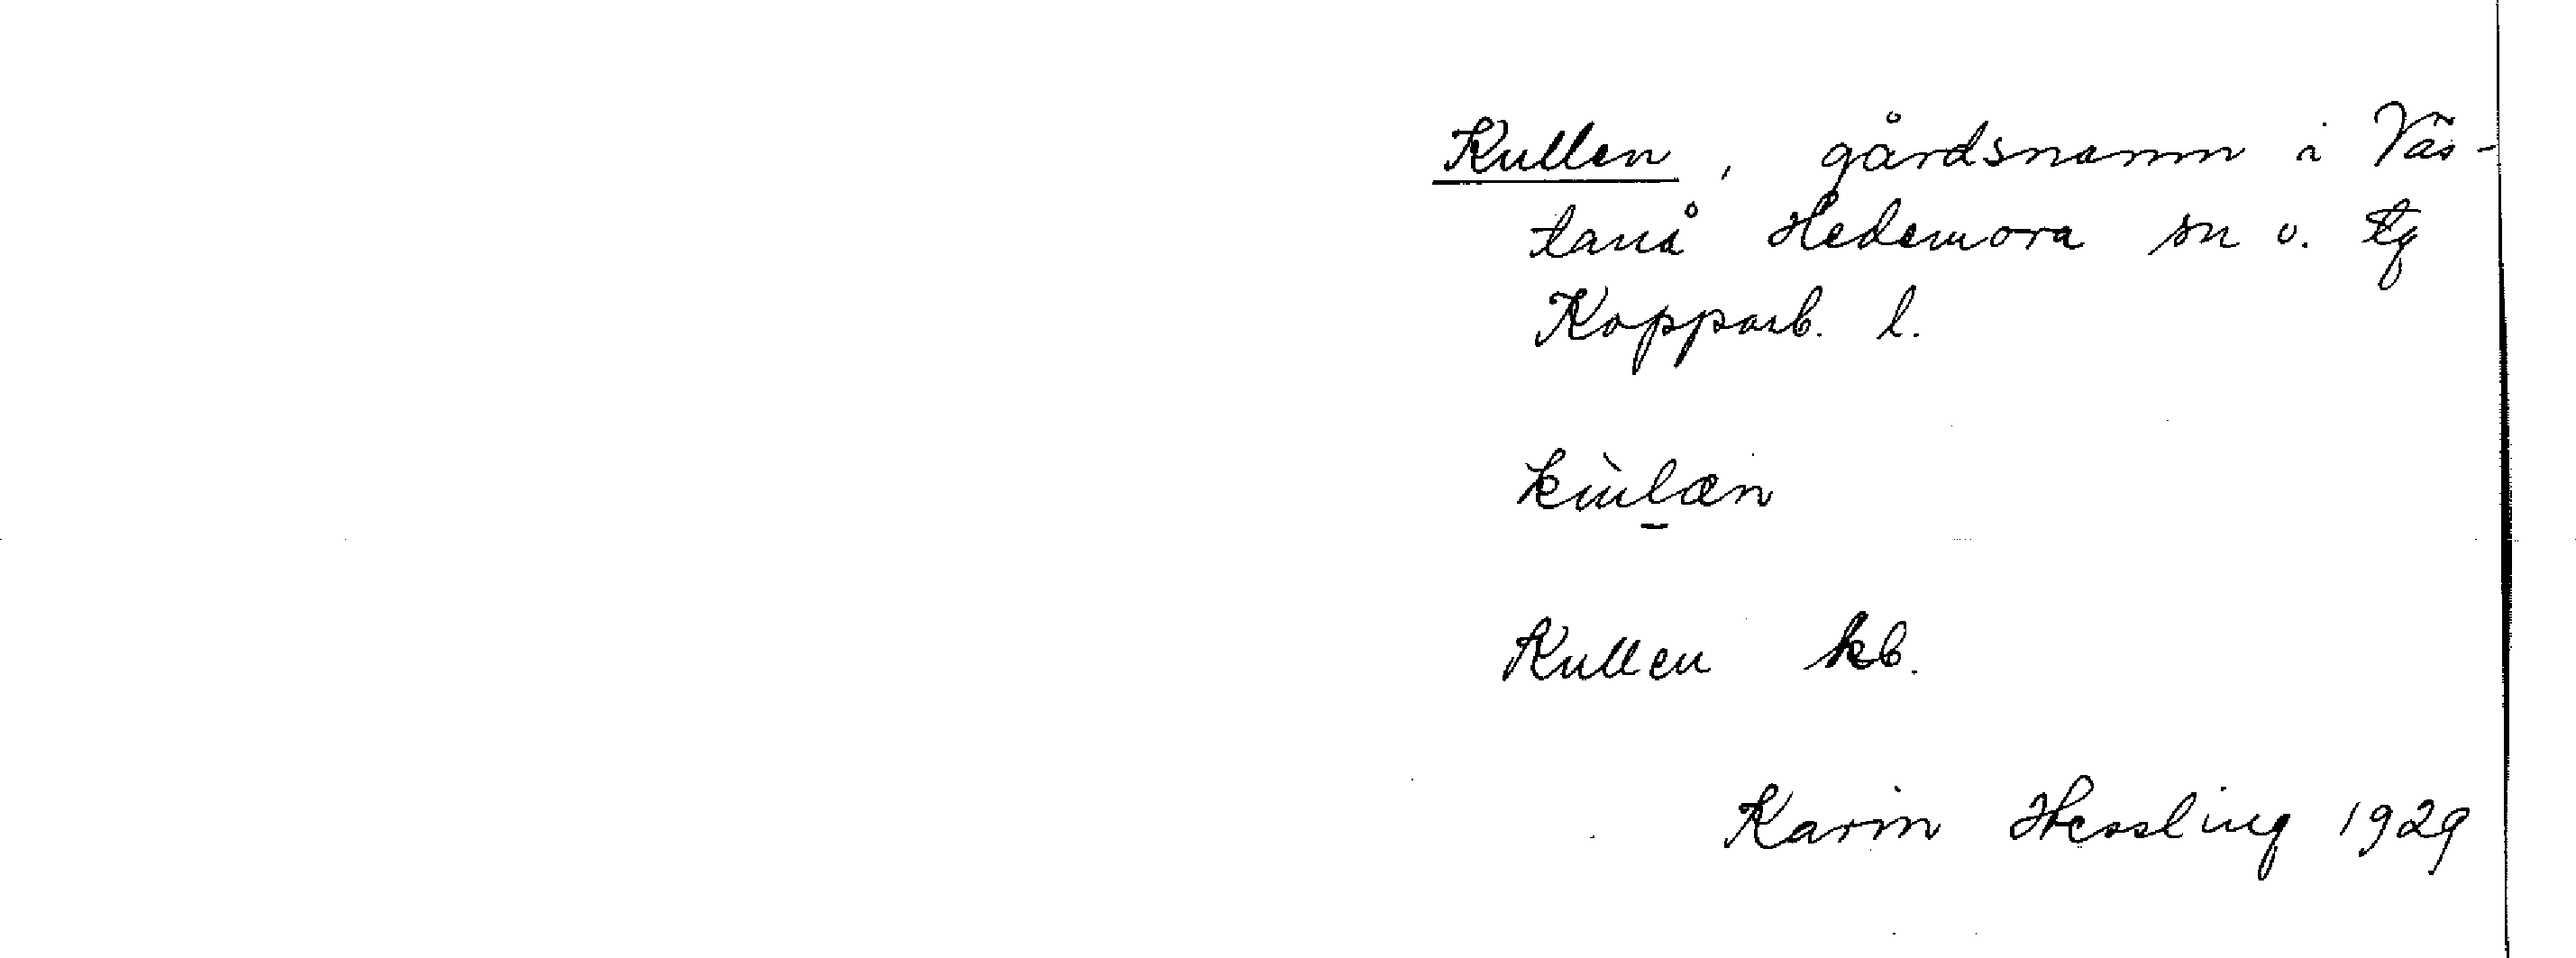 Kullen, gårdsnamn i Väs-
tanå Hedemora sn o. tg
Kopparb. l.
kùl̠æn
Kullen kb.
Karin Hessling 1929